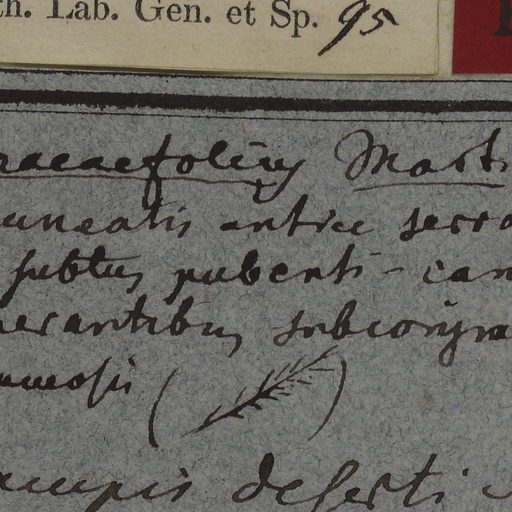 th. Lab. Gen. et Sp. 95
raceaefolius Mart
cuneatis antice serra
subtus pubenti-can
nerantibus subcorym
ramosis ( )
campis deserti